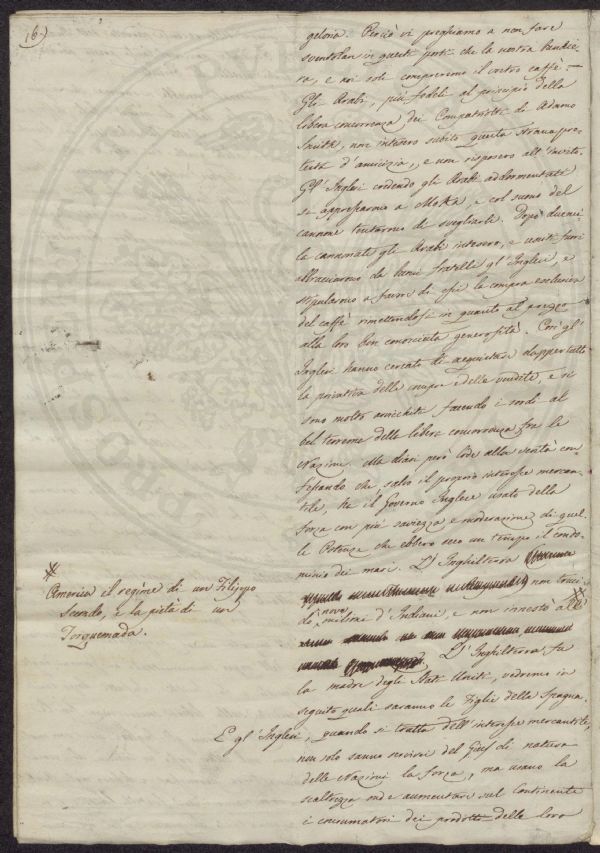 16
gelosia. Perciò vi preghiamo a non fare
sventolare in questi porti che la nostra bandie-
ra, e noi soli compreremo il vostro caffè.
Gli Arabi, più fedeli al principio della
libera concorrenza dei Compatriotti di Adamo
Smith, non intesero subito questa strana pro-
testa d'amicizia, e non risposero all'invito.
Gl'Inglesi credendo gli Arabi addormentati
si appressarono a Moka, e col suono del
cannone tentarono di svegliarli. Dopo
le cannonate gli Arabi intesero, e usciti fuori
abbracciarono da buoni fratelli gl'Inglesi, e
stipularono a favore di essi la compra esclusiva
del caffè rimettendosi in quanto al prezzo
alla loro ben conosciuta generosità. Così gl'
Inglesi hanno cercato di acquistare dappertutto
la privativa delle compre e delle vendite, e si
sono molto arricchiti facendo i sordi al
bel teorema della libera concorrenza fra le
Nazioni. Ma diasi però lode alla verità con-
fessando che, salvo il proprio interesse mercan-
tile, ha il Governo Inglese usato della
forza con più saviezza e moderazione di quel-
le Potenze che ebbero seco un tempo il condo-
minio dei mari. L'Inghilterra
non truci-
dò nove milioni d'Indiani, e non innestò all'
*
L'Inghilterra fu
la madre degli Stati Uniti, vedremo in
seguito quali saranno le Figlie della Spagna.
E gl'Inglesi, quando si tratta dell'interesse mercantile,
non solo sanno servirsi del Gius di natura
delle Nazioni la forza, ma usano la
scaltrezza onde aumentare sul Continente
i consumatori dei prodotti delle loro
*
America il regime di un Filippo
secondo, e la pietà di un
Torquemada.